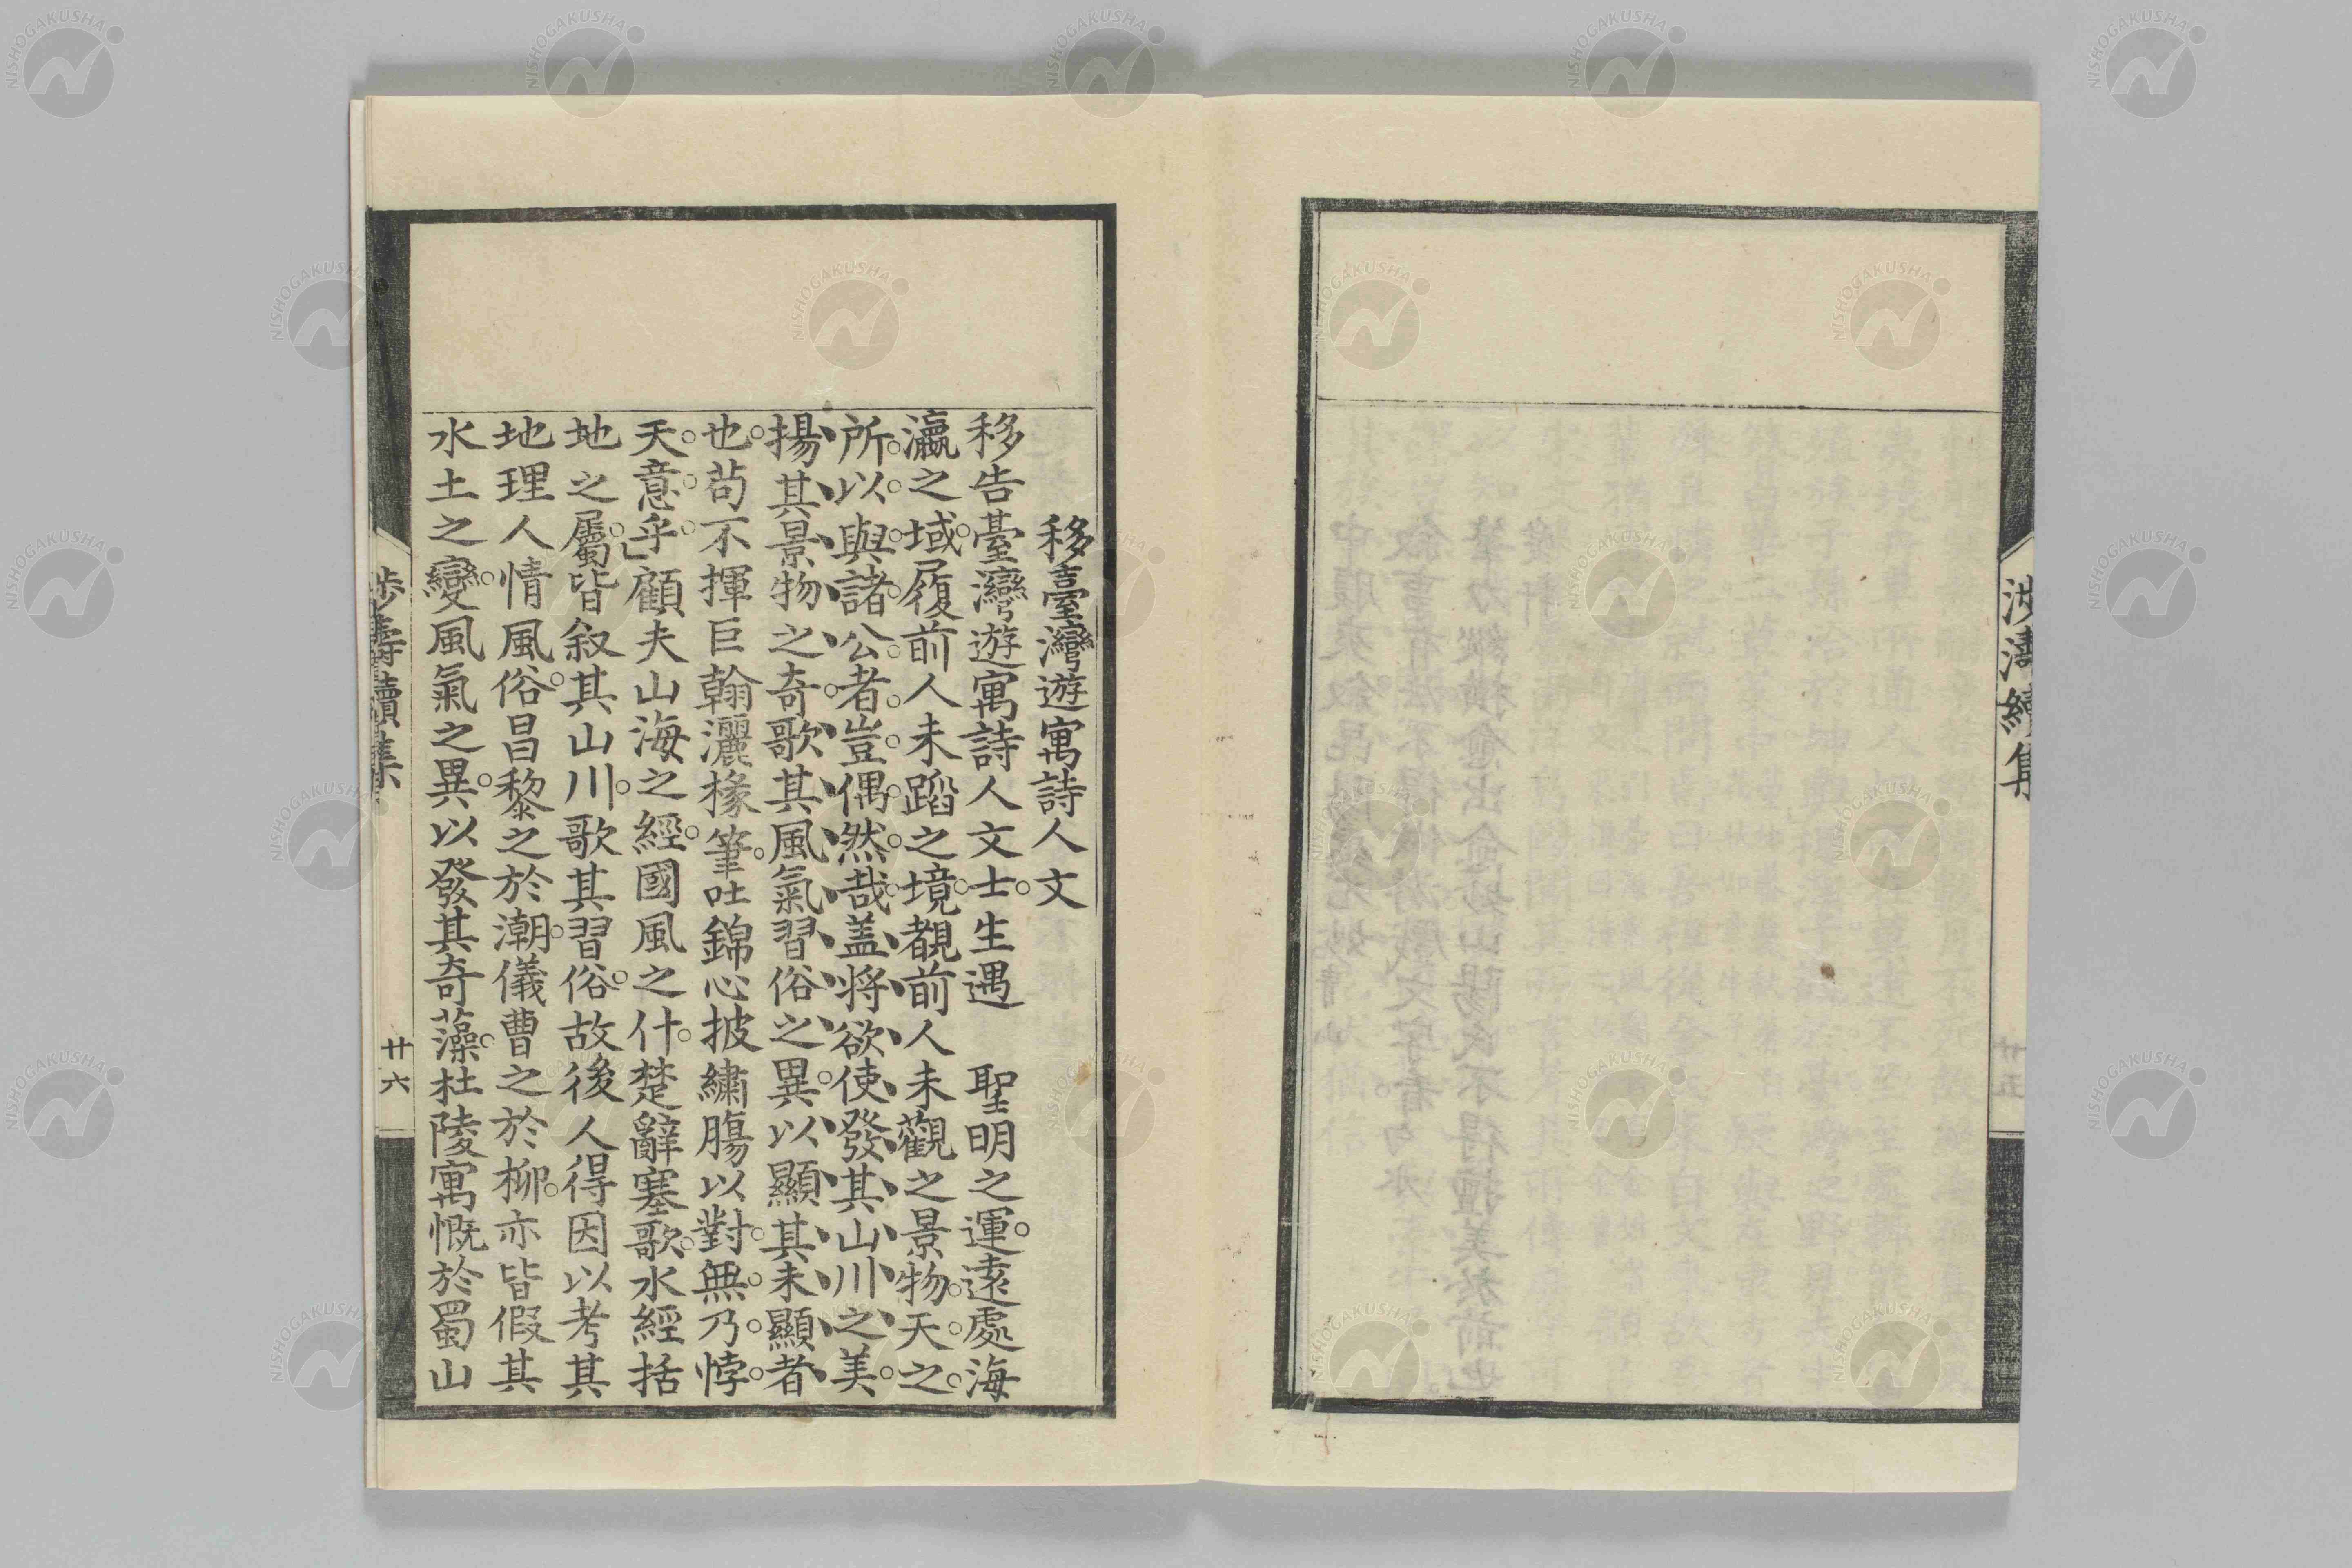 涉濤續集
移臺灣遊寓詩人文
移告臺灣遊寓詩人文士。生遇　聖明之運。遠處海
瀛之域。履前人未蹈之境。覩前人未觀之景物。天之
所以與諸公者豈偶然哉。盖将欲使發其山川之美。
揚其景物之奇。歌其風氣習俗之異。以顯其未顯者
也。苟不揮巨翰灑椽筆。吐錦心披繡膓以對。無乃悖
天意乎。」顧夫山海之經。國風之什。楚辭塞歌。水經括
地之屬。皆叙其山川。歌其習俗。故後人得因以考其
地理人情風俗。昌黎之於潮。儀曹之於柳。亦皆假其
水土之變。風氣之異。以發其奇藻。杜陵寓慨於蜀山
涉濤續集
廿六
NISHOGAKUSHA